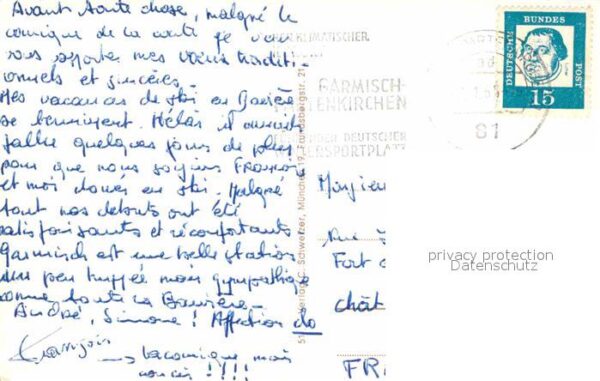 Avant toute chose, malgré le
comique de la carte je veux
vous apporter mes vœux traditi
onnels et sincères.
Mes vacances de ski en Bavière
se terminent. Hélas il aurait
fallu quelques jours de plus
pour que nous soyions François
et moi doués en ski. Malgré
tout nos débuts ont été
satisfaisants et réconfortants
Garmisch est une belle station
un peu huppée mais sympathique
comme toute la Bavière.
André, Simone! Affection do
François
→ laconique mais
concis!!!!
KLIMATISCHER
GARMISCH-
TENKIRCHEN
DER DEUTSCHER
TERSPORTPLATZ
81
DEUTSCHE BUNDES POST
15
C. Schweizer, München 19, Frundsbergstr. 21
Monsieur
Rue
Fort
chât
FR
privacy protection
Datenschutz